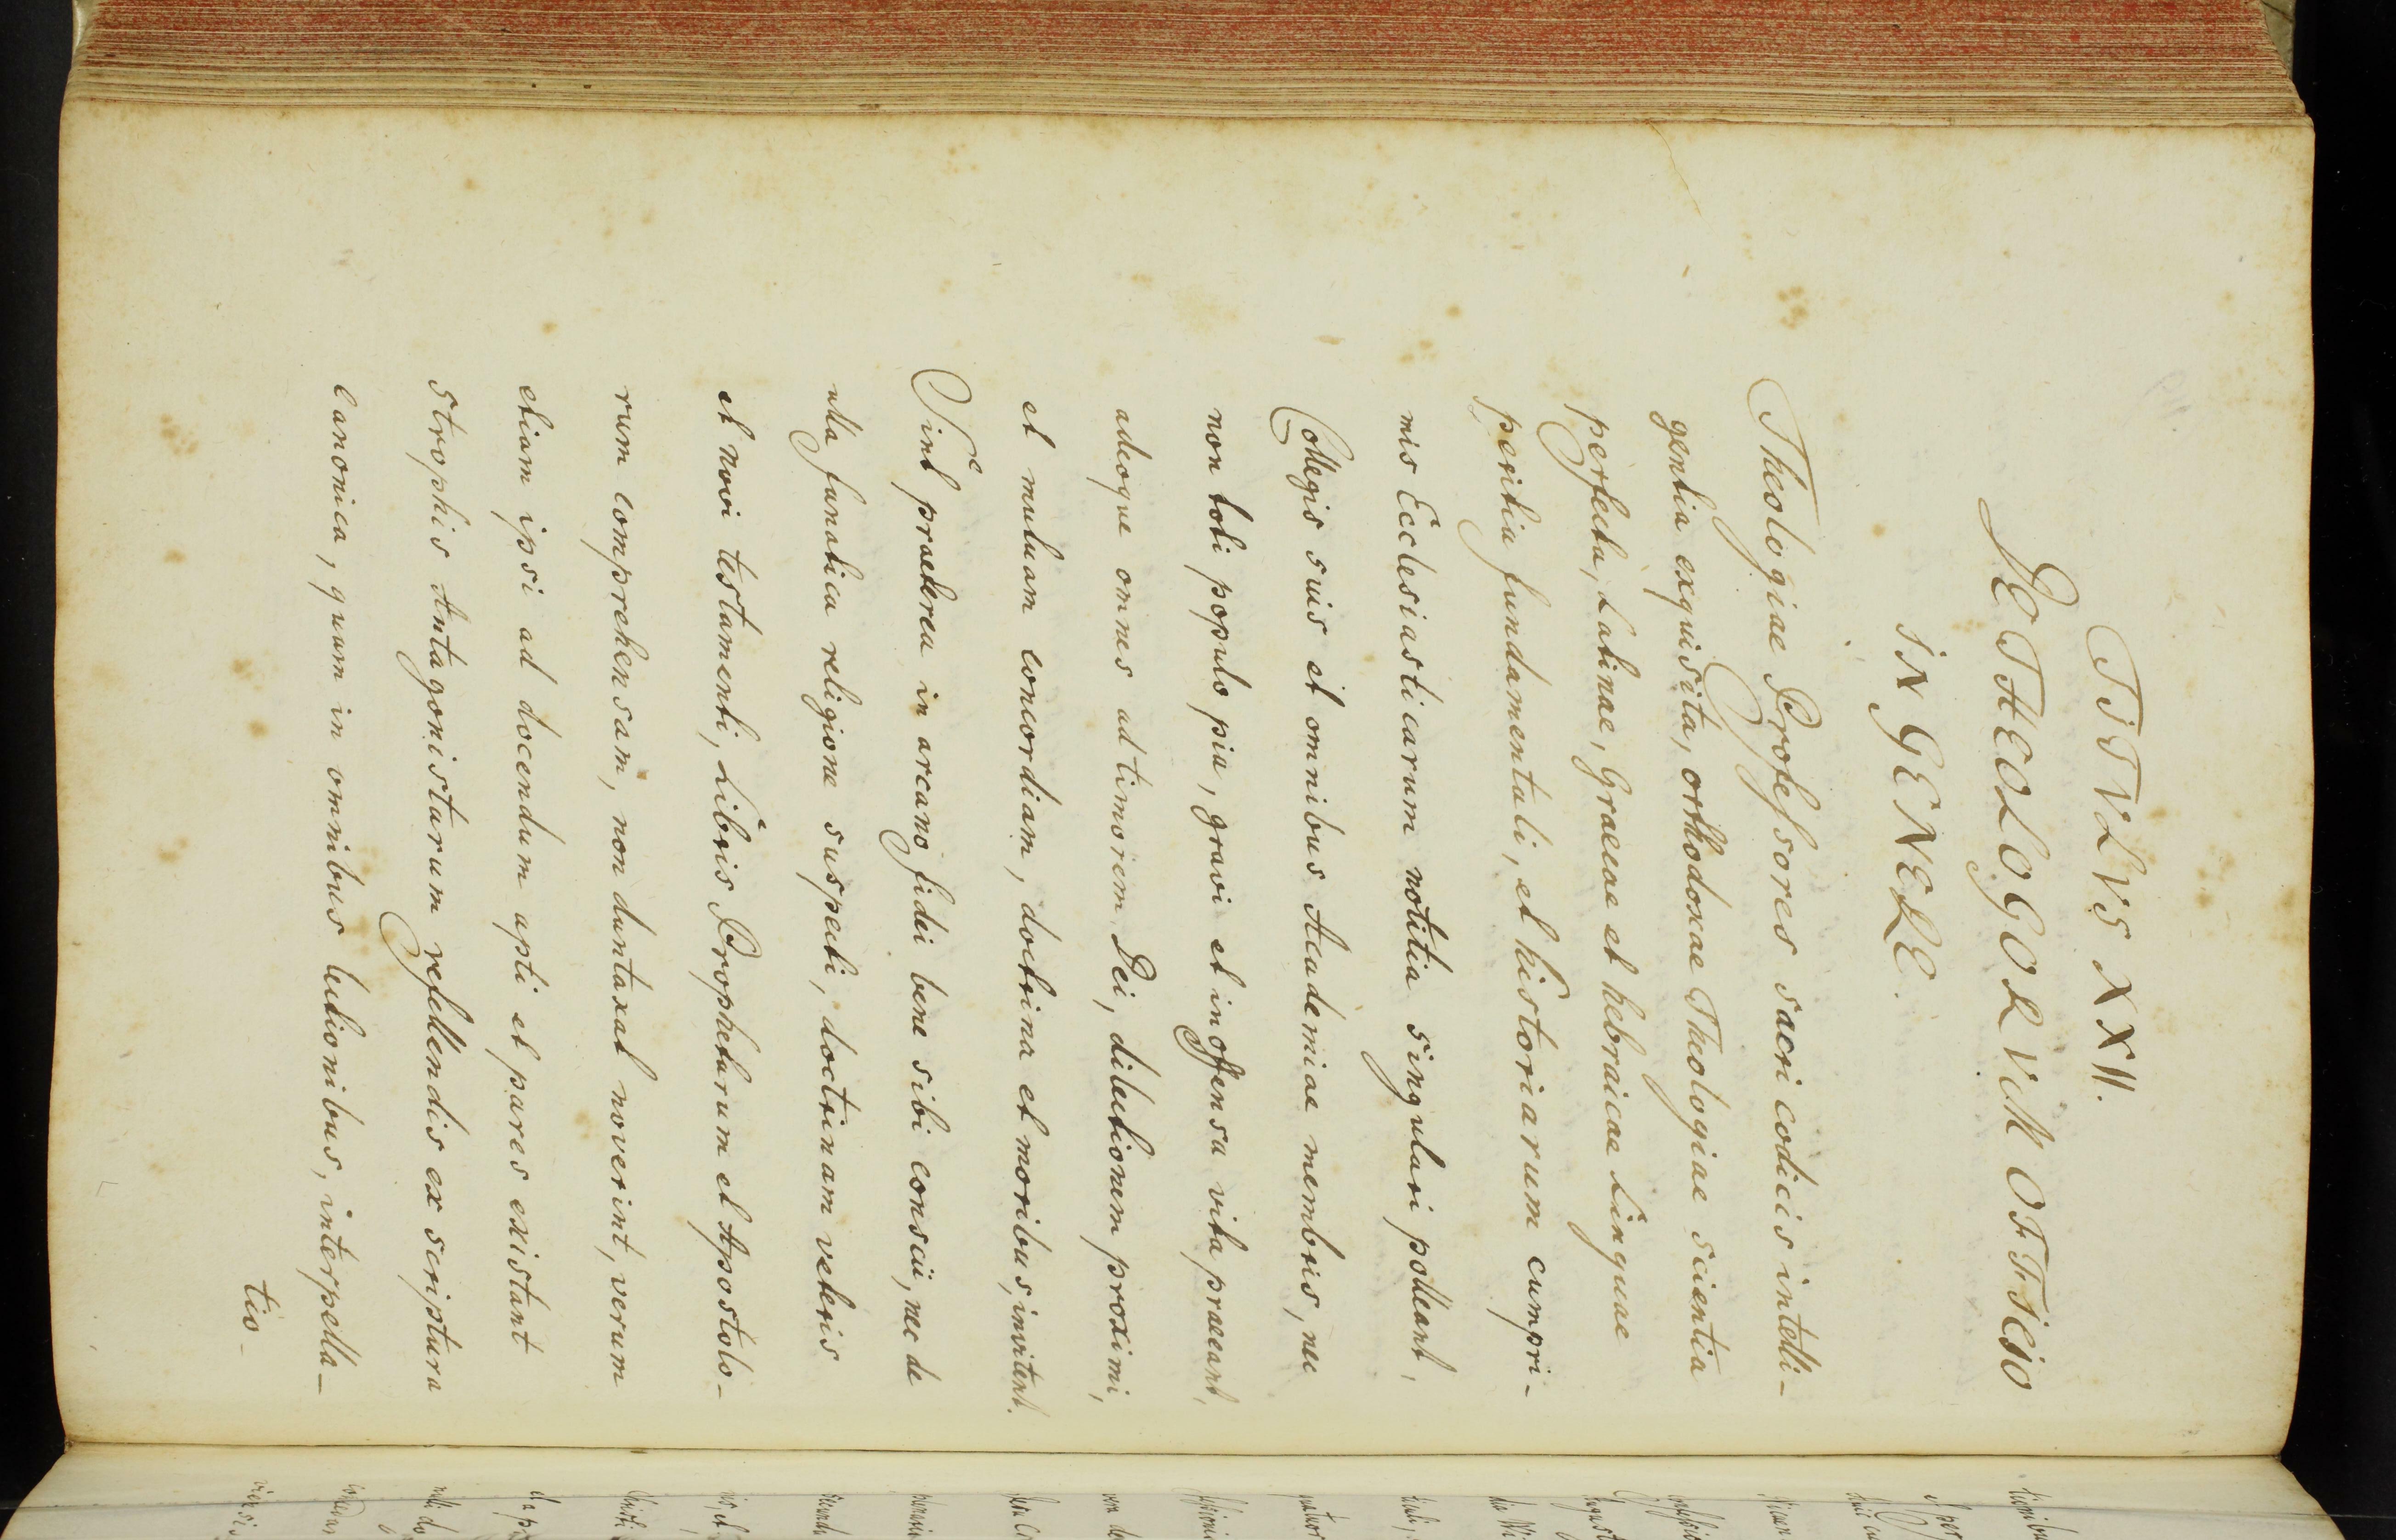 TITVLVS XXII.
DE THEOLOGORVM OFFICIO
IN GENERE.
Theologiae Professores sacri codicis intelli-
gentia exquisita, orthodoxae Theologiae scientia
perfecta, Latinae, Graecae et hebraicae Linguae
peritia fundamentali, et historiarum cumpri-
mis Ecclesiasticarum notitia singulari polleant,
Collegis suis et omnibus Academiae membris, nec
non toti populo pia, gravi et inoffensa vita praeeant,
adeoque omnes ad timorem Dei, dilectionem proximi,
et mutuam concordiam, doctrina et moribus, invitent.
Sint praeterea in arcano fidei bene sibi conscii, nec de
ulla fanatica religione suspecti, doctrinam veteris
et novi testamenti, Libris Prophetarum et Apostolo-
rum comprehensam, non duntaxat noverint, verum
etiam ipsi ad docendum apti et pares existant
strophis Antagonistarum refellendis ex scriptura
canonica, quam in omnibus lectionibus, interpella-
tio-